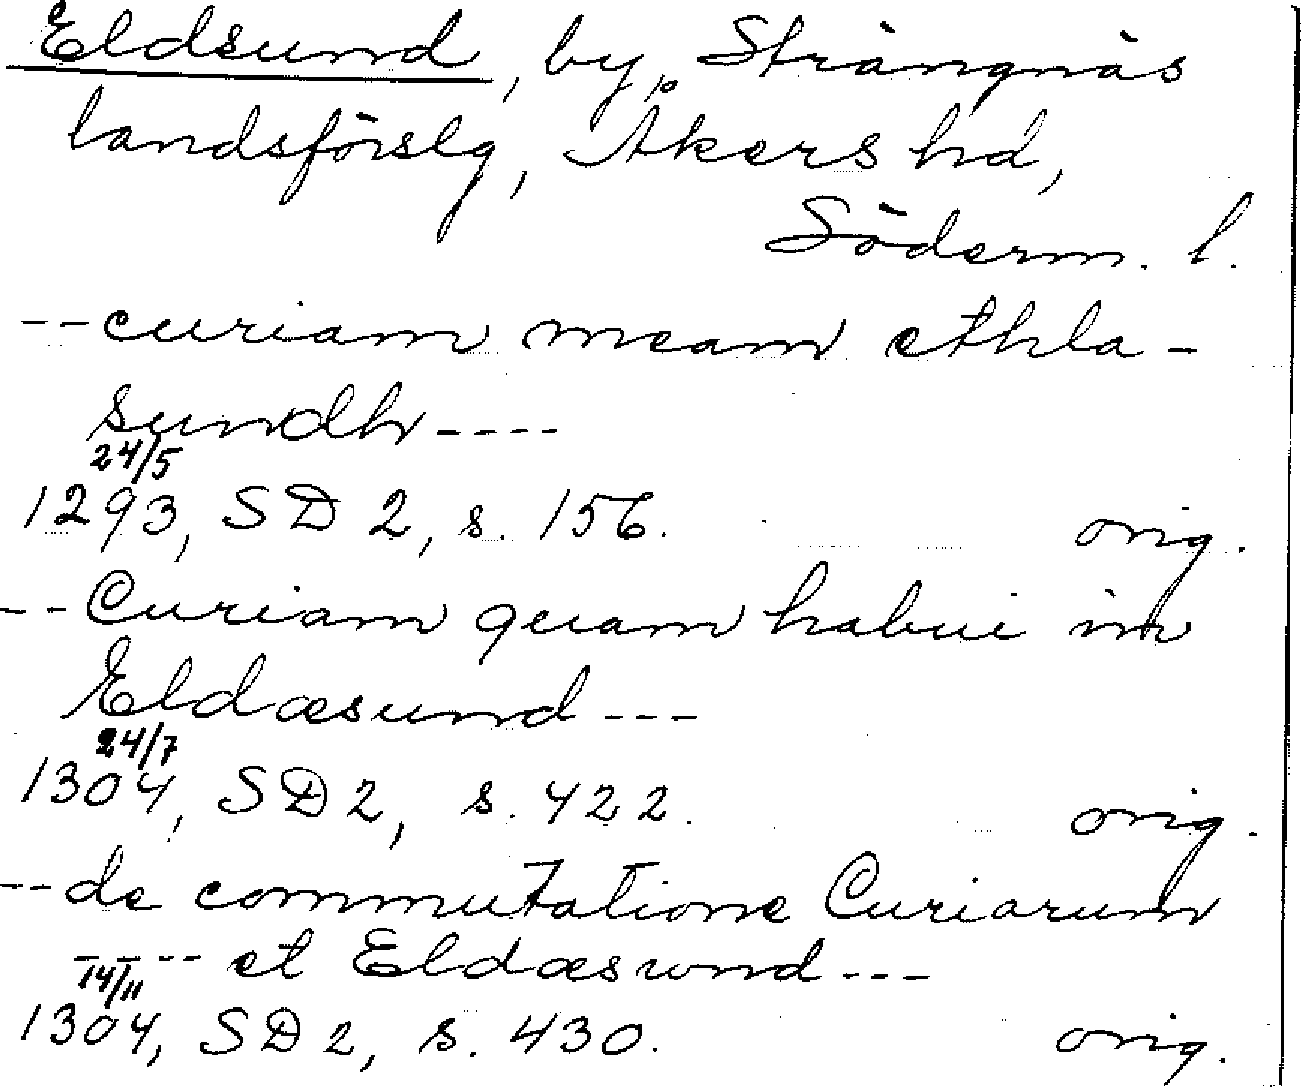 Eldsund, by, Strängnäs
landsförslg, Åkers hd,
Söderm. l.
--curiam meam ethla-
sundh----
24/5
1293, SD 2, s. 156. orig.
--Curiam quam habui in
Eldæsund---
24/7
1304, SD 2, s. 422. orig.
--de commutatione Curiarum
----- et Eldæsund---
14/11
1304, SD 2, s. 430. orig.